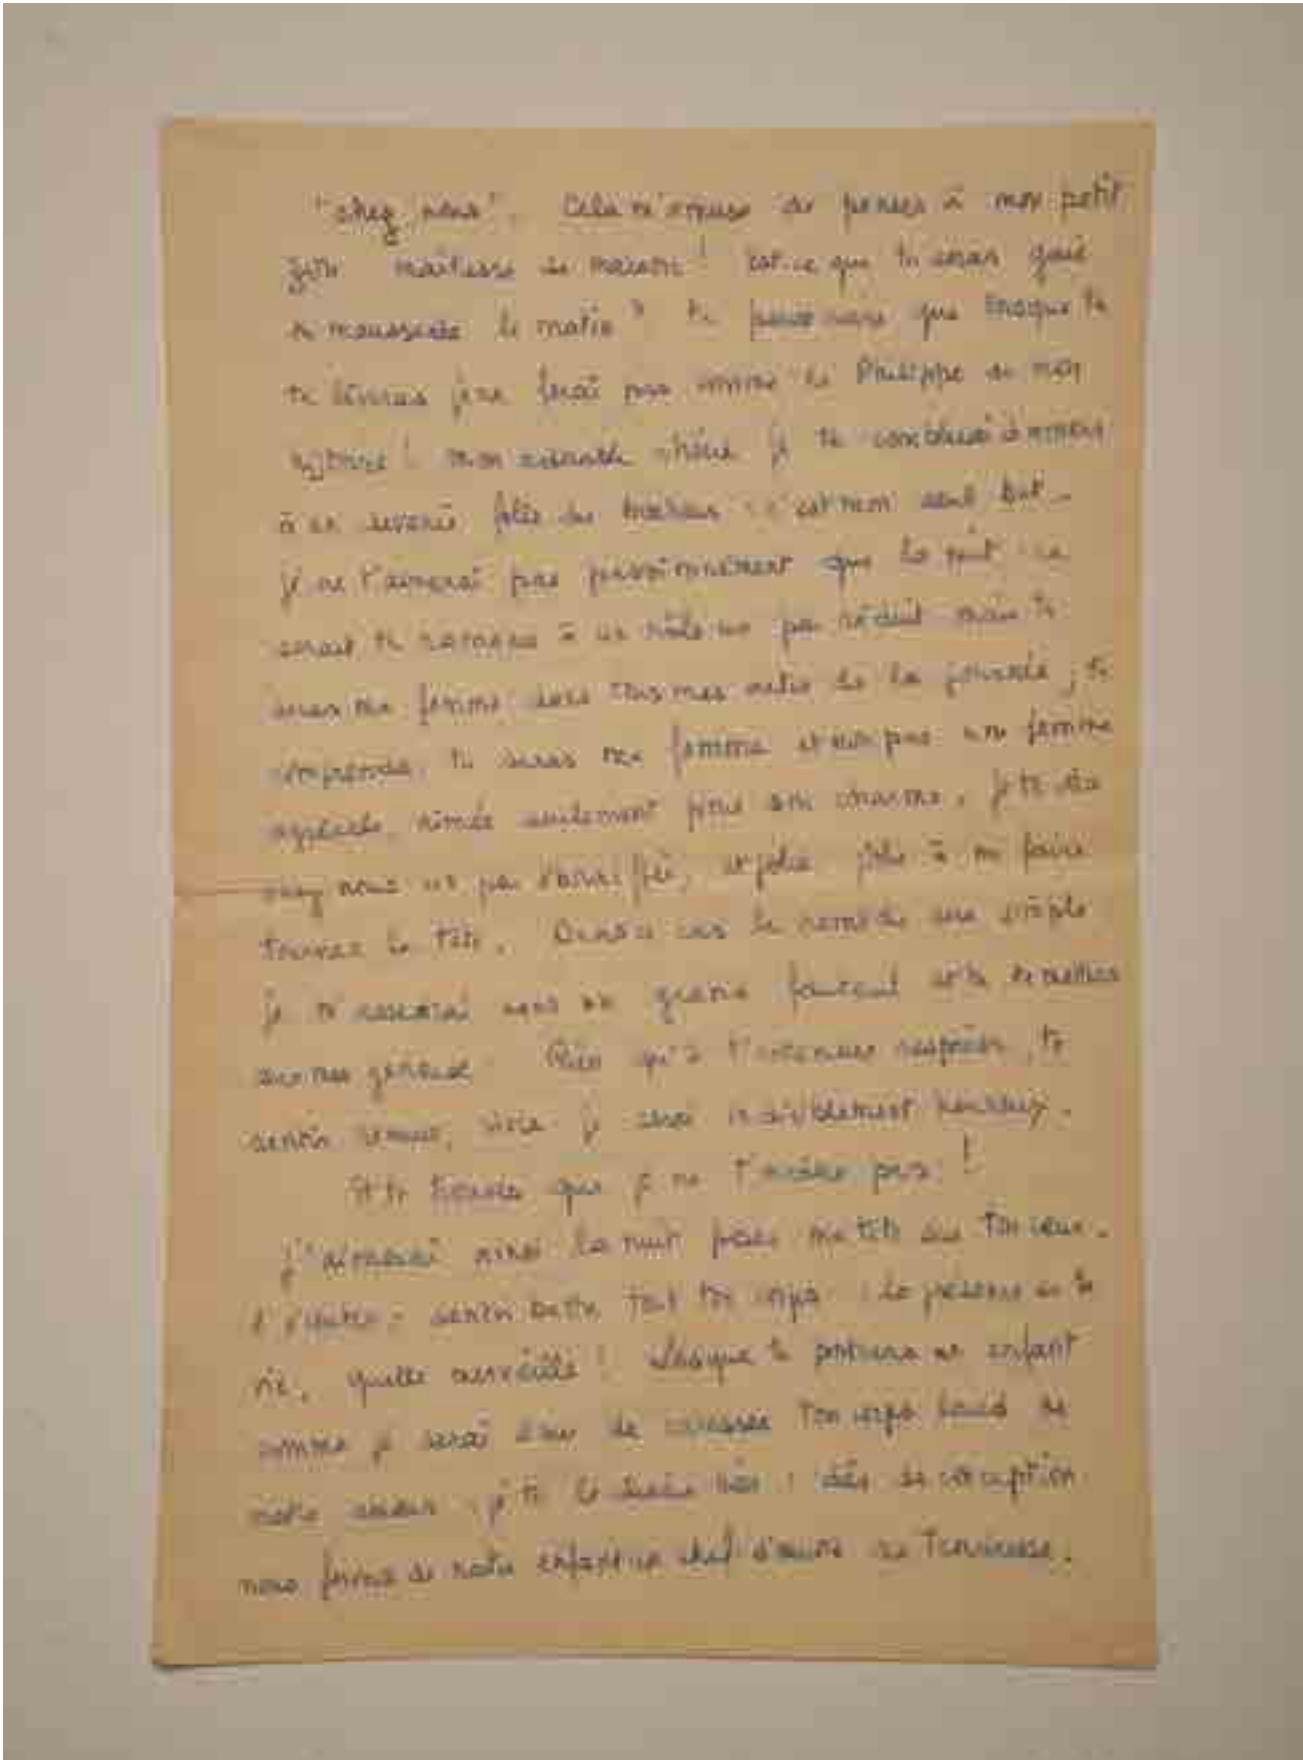 "chez nous". Cela m'amuse de penser à mon petit
maîtresse de maison ! Est-ce que tu seras gaie
ou maussade le matin ? tu peux que lorsque tu
te lèveras je ne ferai pas comme le Philippe de mon
histoire ! mon chérie je te
à en devenir folle de bonheur : c'est mon seul but -
je ne t'aimerai pas passionnément que la nuit : ce
serait te ramener à un rôle un peu réduit mais tu
seras ma femme dans tous mes actes de la journée ; tu
comprends, tu seras ma femme et non pas une femme
agréable, aimée seulement pour son charme. je te vois
chez nous un peu ébouriffée, et jolie jolie à me faire
tourner la tête. Dans ce cas le remède sera simple
je m'assoirai dans un grand fauteuil et tu te mettras
sur mes genoux. Rien qu'à t'entendre respirer, te
sentir remuer, vivre je serai indiciblement heureux.
Et tu trouves que je ne t'aime pas !
j'aimerai ainsi la nuit poser ma tête sur ton cœur.
l'écouter - sentir battre tout ton corps : la présence de la
vie, quelle merveille ! Lorsque tu porteras un enfant
comme je serai ému de caresser ton corps lourd de
notre amour : je te le dis : dès sa conception
nous ferons de notre enfant un chef d'œuvre de tendresse.